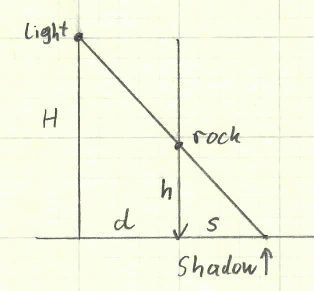 light
H
rock
h
d
s
Shadow